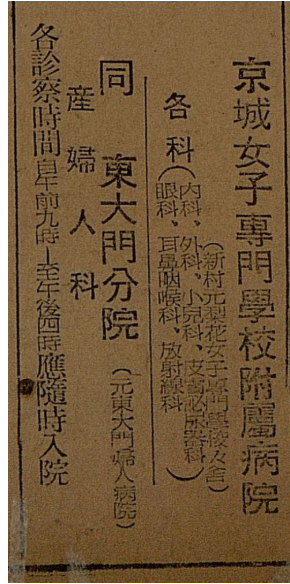 京城女子專門學校附屬病院
(新村元梨花女子專門學校々舍)
各科(內科、外科、小兒科、皮膚泌尿器科
眼科、耳鼻咽喉科、放射線科)
同 東大門分院(元東大門婦人病院)
産婦人科
各診察時間自午前九時—至午後四時應隨時入院